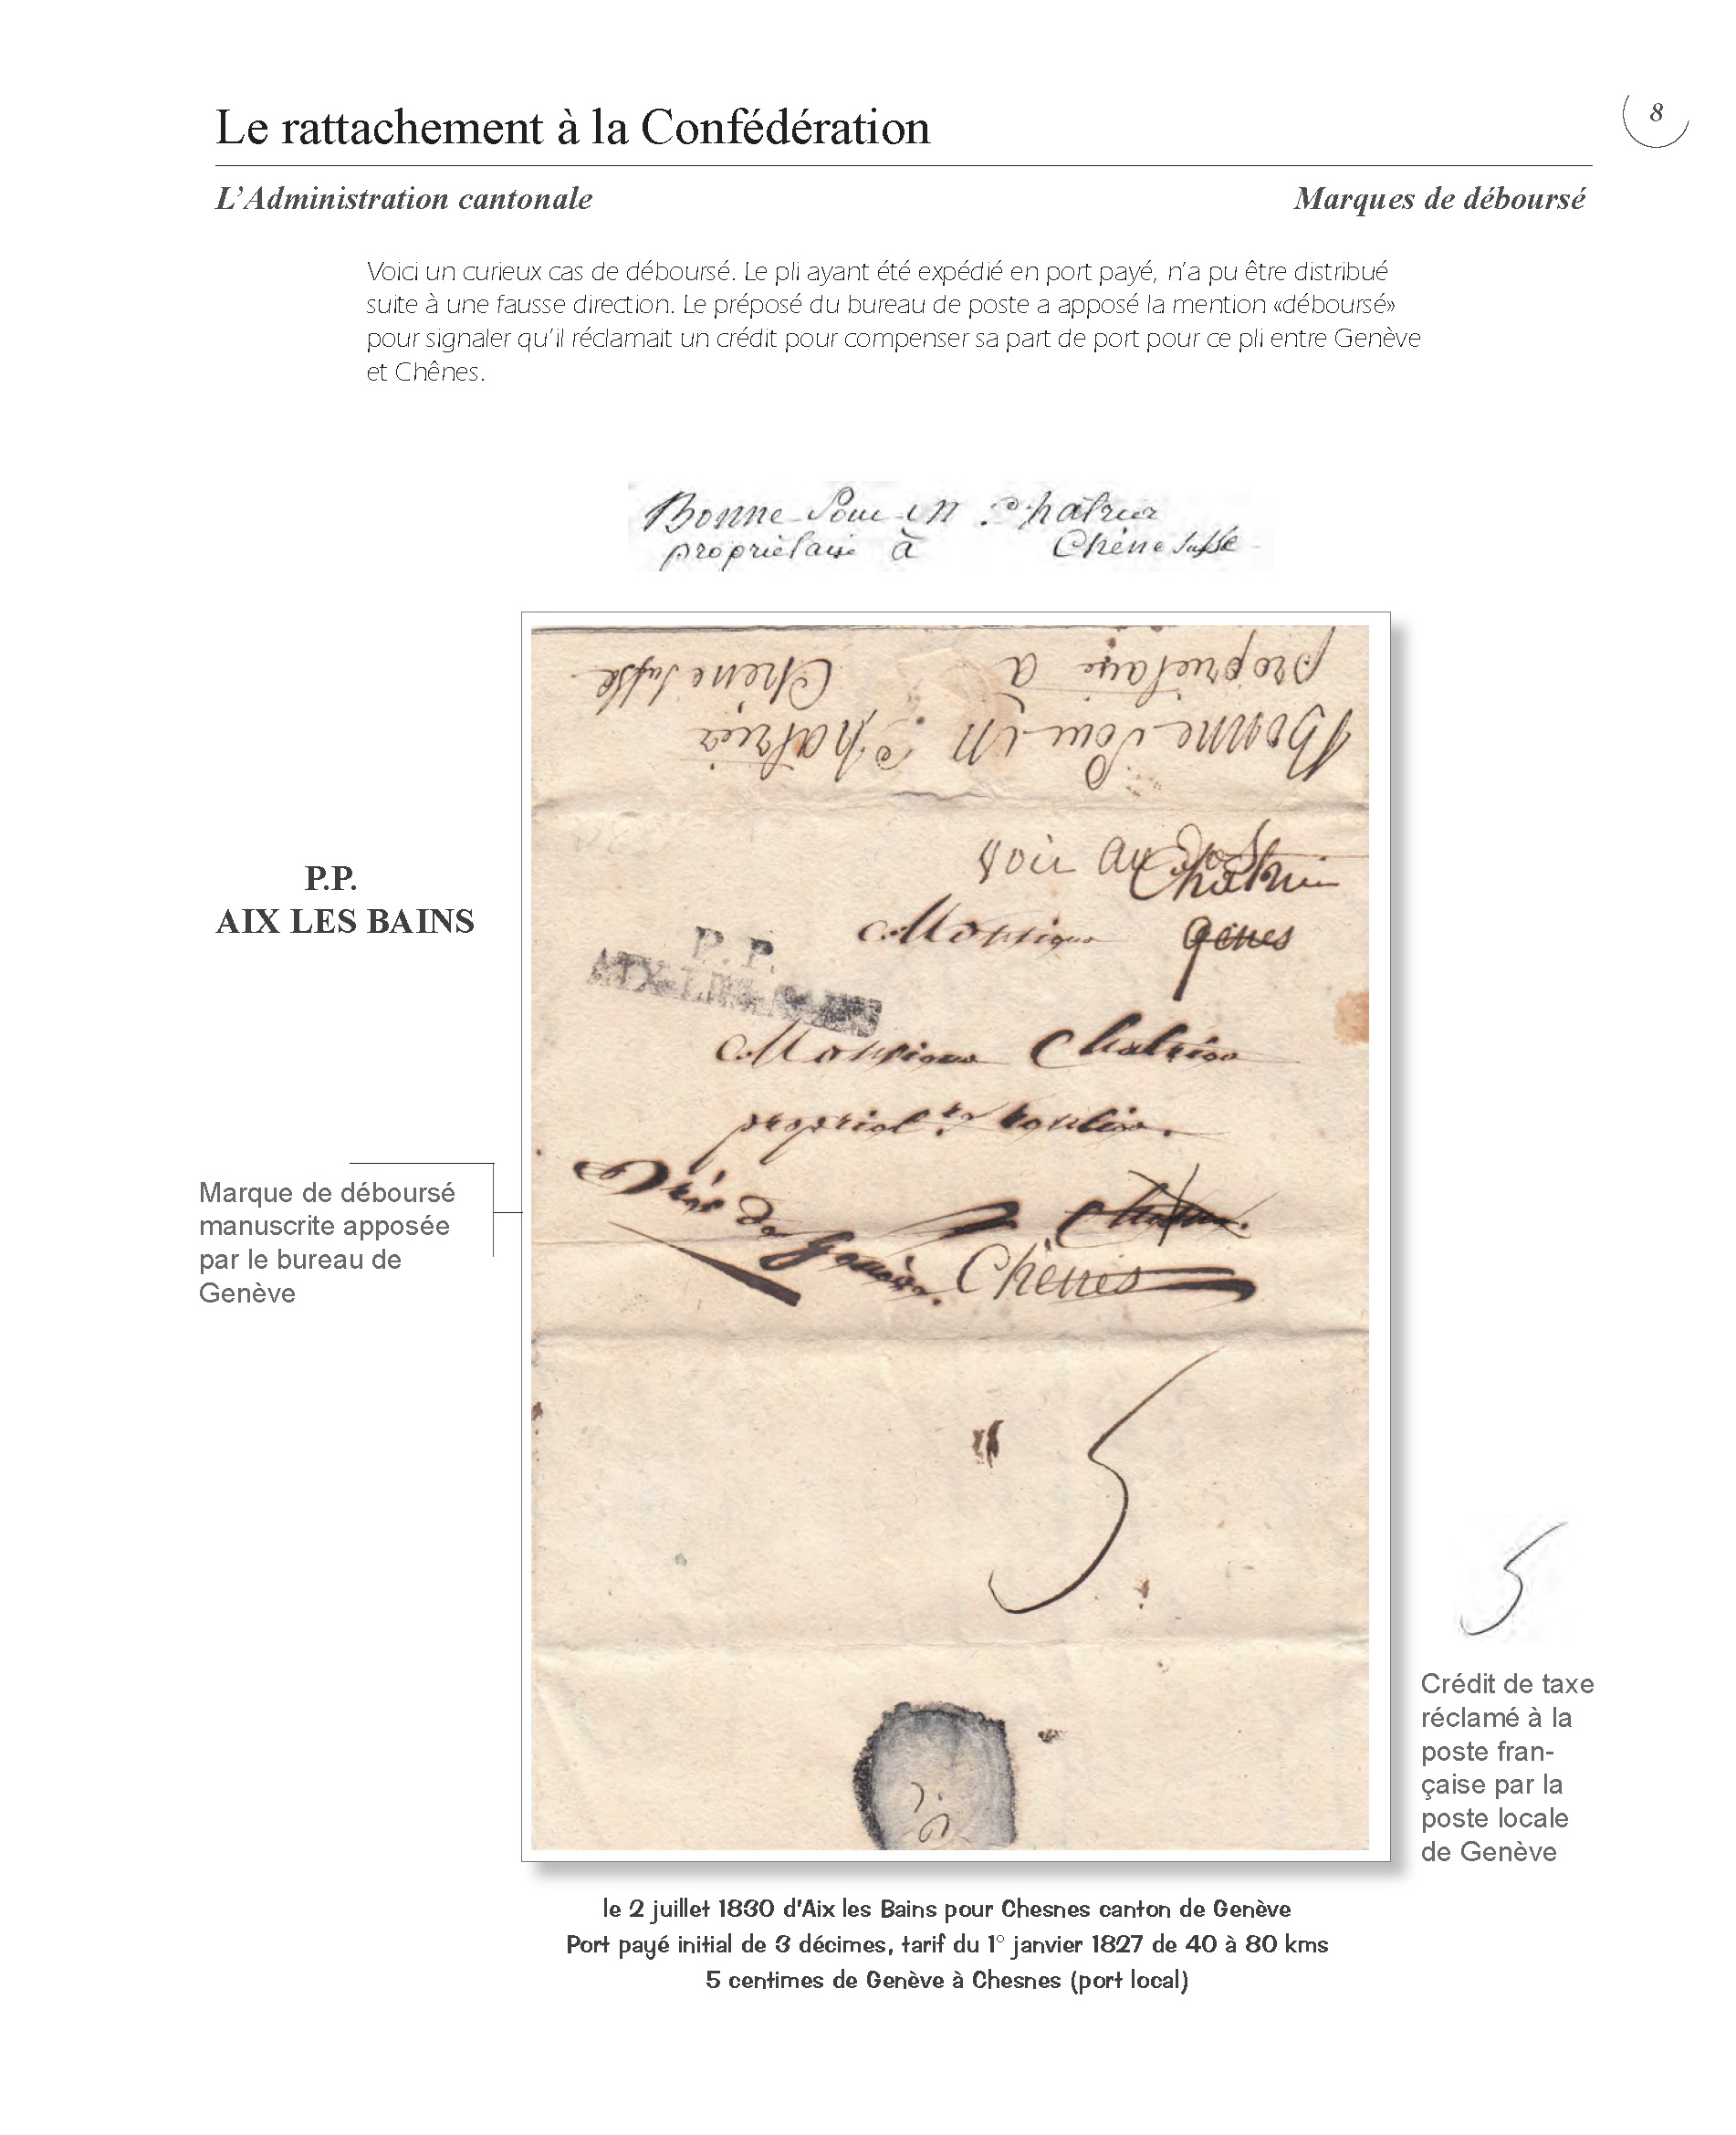 Le rattachement à la Confédération
8
L’Administration cantonale
Marques de déboursé
Voici un curieux cas de déboursé. Le pli ayant été expédié en port payé, n’a pu être distribué
suite à une fausse direction. Le préposé du bureau de poste a apposé la mention «déboursé»
pour signaler qu’il réclamait un crédit pour compenser sa part de port pour ce pli entre Genève
et Chênes.
Bonne Pour Chatrier
propriétaire à Chêne
propriétaire à Chêne
Bonne Pour Chatrier
voir au dos
Chatrier
Monsieur
P.P.
AIX LES BAINS
P. P.
AIX-LES-BAINS
Monsieur Chatrier
propriet.re
Près de Genève. à
Chênes
Marque de déboursé
manuscrite apposée
par le bureau de
Genève
5
5
Crédit de taxe
réclamé à la
poste fran-
çaise par la
poste locale
de Genève
le 2 juillet 1830 d'Aix les Bains pour Chesnes canton de Genève
Port payé initial de 3 décimes, tarif du 1° janvier 1827 de 40 à 80 kms
5 centimes de Genève à Chesnes (port local)